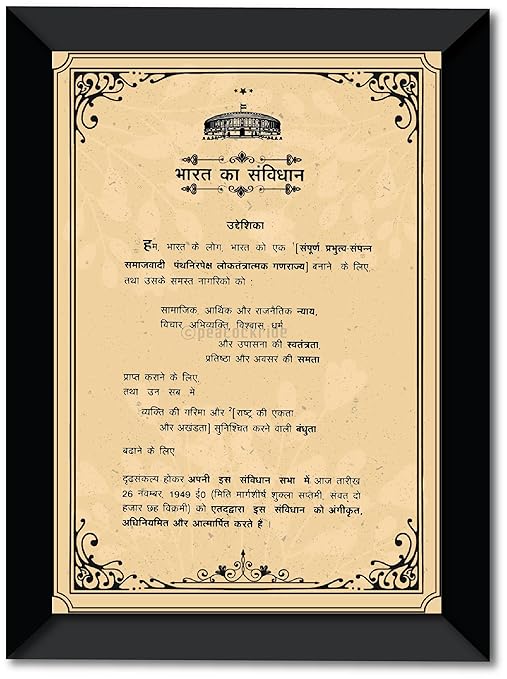 भारत का संविधान
उद्देशिका
हम, भारत के लोग, भारत को एक ¹[संपूर्ण प्रभुत्व-संपन्न
समाजवादी पंथनिरपेक्ष लोकतंत्रात्मक गणराज्य] बनाने के लिए,
तथा उसके समस्त नागरिको को:
सामाजिक, आर्थिक और राजनैतिक न्याय,
विचार, अभिव्यक्ति, विश्वास, धर्म
©peacockride
और उपासना की स्वतंत्रता,
प्रतिष्ठा और अवसर की समता
प्राप्त कराने के लिए,
तथा उन सब में
व्यक्ति की गरिमा और ²[राष्ट्र की एकता
और अखंडता] सुनिश्चित करने वाली बंधुता
बढाने के लिए
दृढसंकल्प होकर अपनी इस संविधान सभा में आज तारीख
26 नवम्बर, 1949 ई0 (मिति मार्गशीर्ष शुक्ला सप्तमी, संवत दो
हजार छह विक्रमी) को एतद्द्वारा इस संविधान को अंगीकृत,
अधिनियमित और आत्मार्पित करते हैं ।